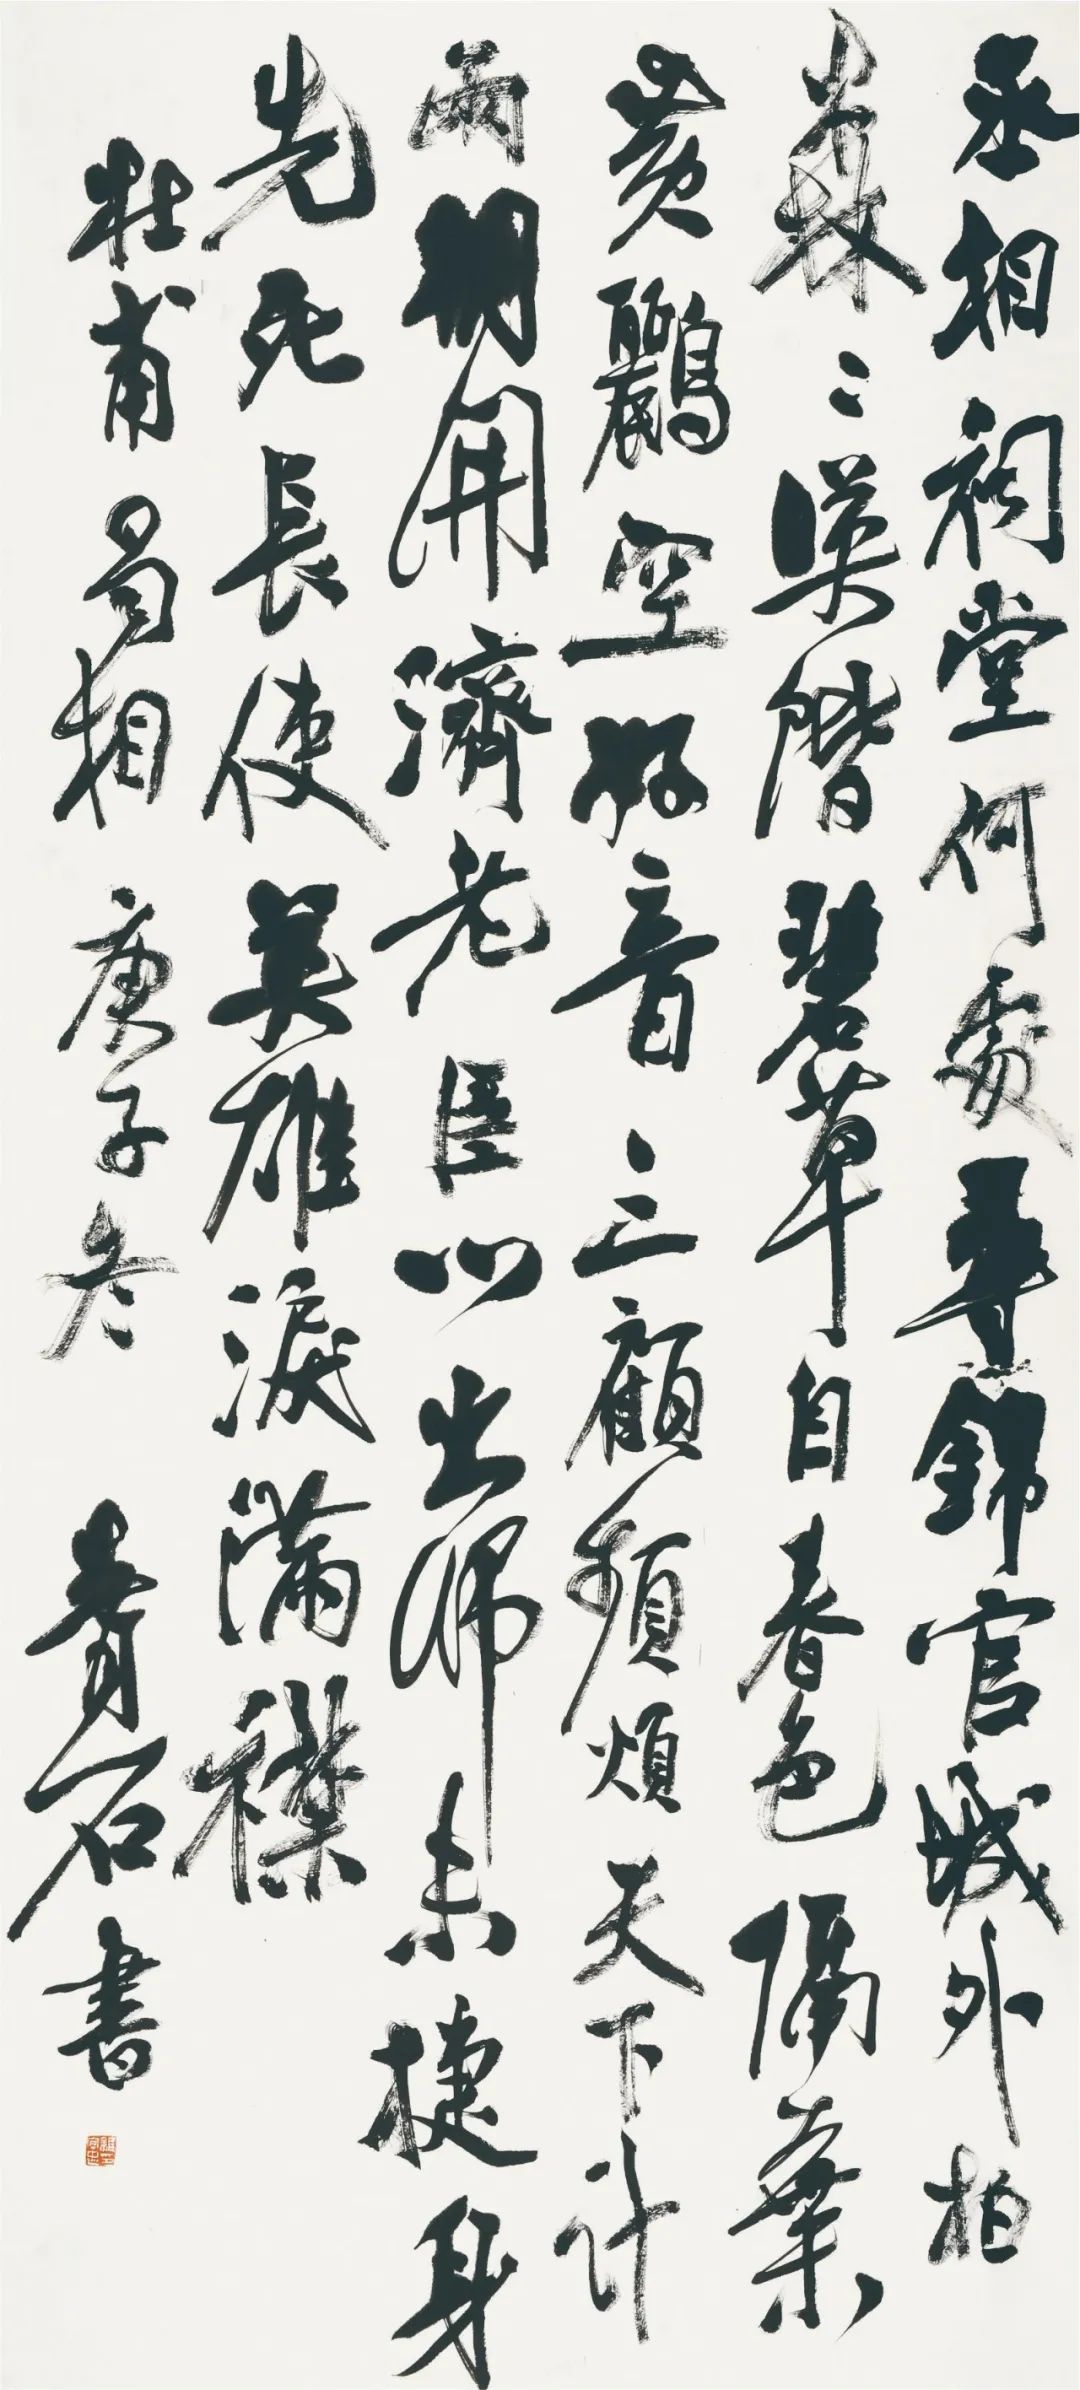 丞相祠堂何處尋錦官城外柏
森〻暎階碧草自春色隔葉
黃鸝空好音三顧頻煩天下計
兩朝開濟老臣心出師未捷身
先死長使英雄淚滿襟
杜甫蜀相 庚子冬 青石書